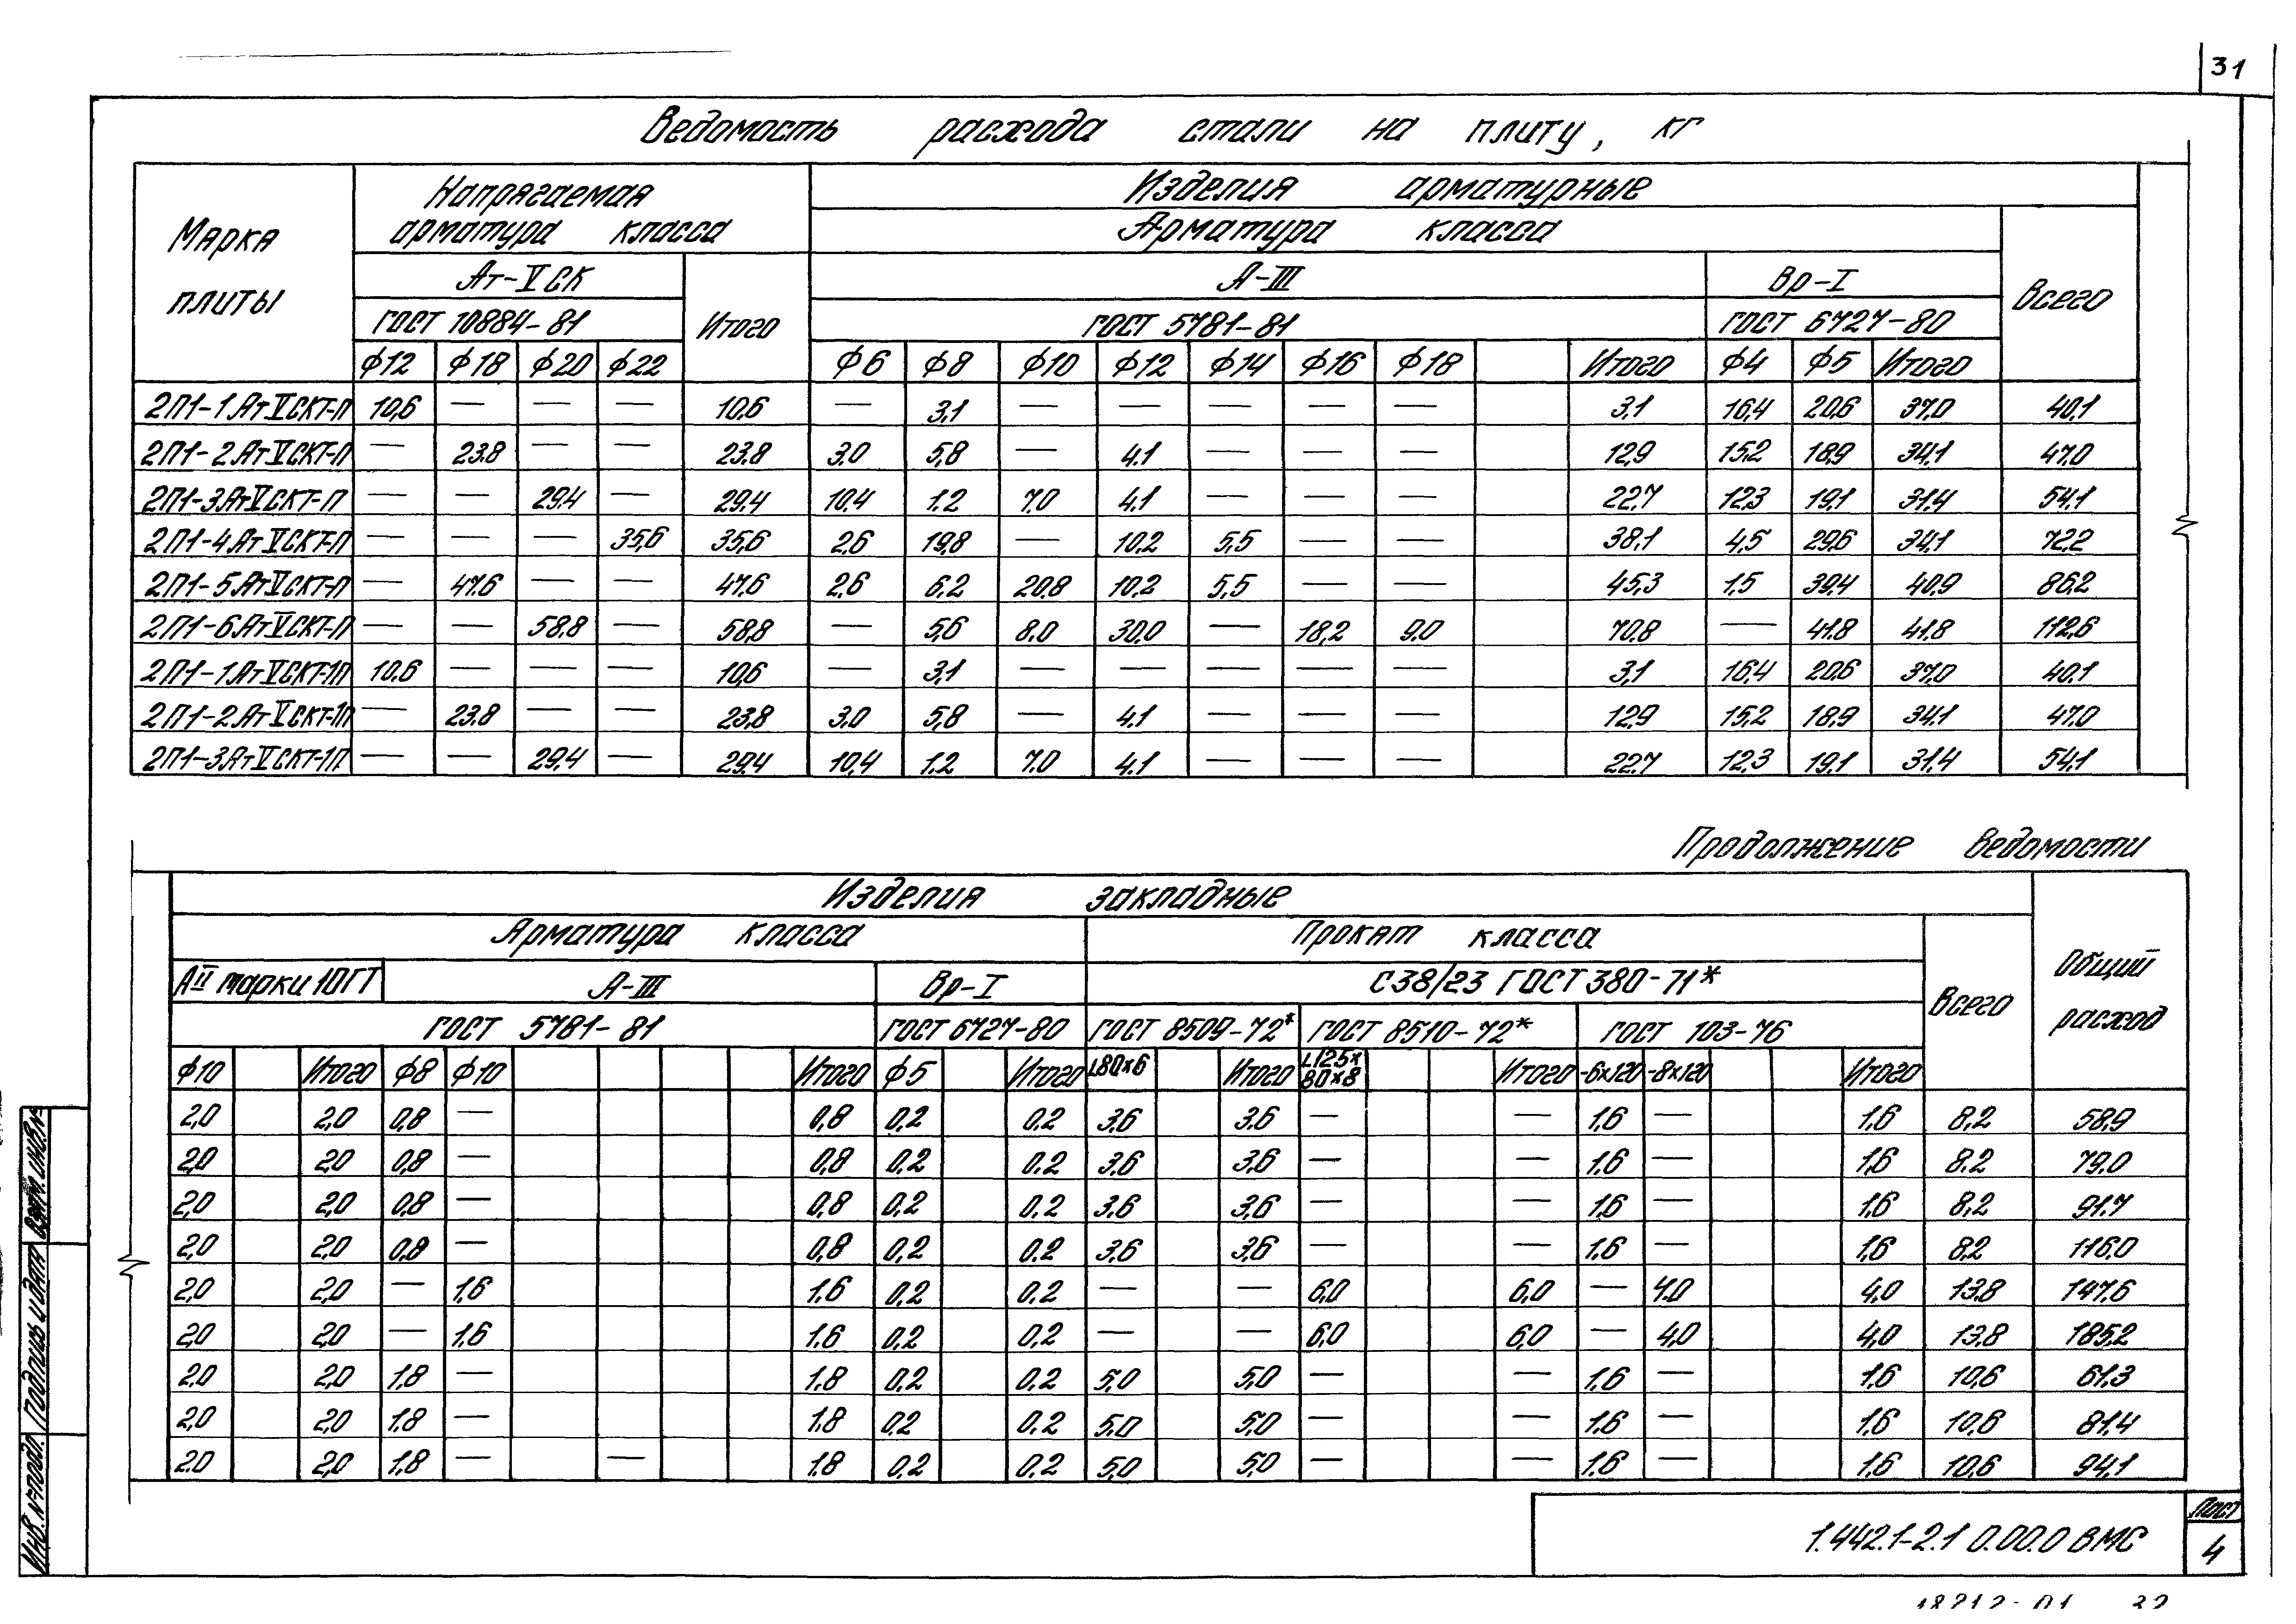 31
Ведомость расхода стали на плиту, кг
Марка плиты
Напрягаемая арматура класса
Изделия арматурные
Арматура класса
Ат-V СК
Итого
А-III
Вр-I
Всего
ГОСТ 10884-81
ГОСТ 5781-81
ГОСТ 6727-80
ф12 ф18 ф20 ф22 ф6 ф8 ф10 ф12 ф14 ф16 ф18 Итого ф4 ф5 Итого
2П1-1АтVСКТ-П 10,6 — — — 10,6 — 3,1 — — — — — 3,1 16,4 20,6 37,0 40,1
2П1-2АтVСКТ-П — 23.8 — — 23.8 3.0 5,8 — 4.1 — — — 12,9 15,2 18,9 34,1 47,0
2П1-3АтVСКТ-П — — 29.4 — 29.4 10,4 1.2 7.0 4.1 — — — 22,7 12,3 19,1 31,4 54,1
2П1-4АтVСКТ-П — — — 35,6 35,6 2,6 19,8 — 10.2 5,5 — — 38,1 4,5 29,6 34,1 72,2
2П1-5АтVСКТ-П — 47.6 — — 47.6 2,6 6,2 20.8 10.2 5,5 — — 45,3 1,5 39,4 40,9 86,2
2П1-6АтVСКТ-П — — 58,8 — 58,8 — 5,6 8.0 30,0 — 18,2 9.0 70,8 — 41.8 41.8 112,6
2П1-1АтVСКТ-1П 10.6 — — — 10,6 — 3,1 — — — — — 3,1 16,4 20,6 37,0 40,1
2П1-2АтVСКТ-1П — 23.8 — — 23,8 3,0 5,8 — 4.1 — — — 12,9 15,2 18,9 34,1 47,0
2П1-3АтVСКТ-1П — — 29,4 — 29,4 10,4 1.2 7.0 4.1 — — — 22,7 12,3 19,1 31,4 54,1
Продолжение ведомости
Изделия закладные
Общий расход
Арматура класса
Прокат класса
Всего
АII марки 10ГТ
А-III
Вр-I
С38/23 ГОСТ 380-71*
ГОСТ 5781-81
ГОСТ 6727-80
ГОСТ 8509-72*
ГОСТ 8510-72*
ГОСТ 103-76
ф10 Итого ф8 ф10 Итого ф5 Итого L80×6 Итого L125×80×8 Итого -6×120 -8×120 Итого
2,0 2,0 0,8 — 0,8 0,2 0.2 3,6 3.6 — — 1.6 — 1,6 8,2 58,9
2,0 2,0 0,8 — 0,8 0,2 0.2 3,6 3,6 — — 1.6 — 1,6 8,2 79,0
2,0 2,0 0,8 — 0,8 0,2 0.2 3,6 3,6 — — 1.6 — 1,6 8,2 91,7
2,0 2,0 0,8 — 0,8 0,2 0.2 3,6 3,6 — — 1.6 — 1,6 8,2 116,0
2,0 2,0 — 1,6 1.6 0,2 0.2 — — 6,0 6,0 — 4,0 4,0 13,8 147,6
2,0 2,0 — 1,6 1.6 0,2 0.2 — — 6,0 6,0 — 4,0 4,0 13,8 185,2
2,0 2,0 1.8 — 1.8 0,2 0.2 5,0 5,0 — — 1.6 — 1,6 10,6 61,3
2,0 2,0 1.8 — 1.8 0,2 0.2 5,0 5,0 — — 1.6 — 1,6 10,6 81,4
2.0 2,0 1.8 — — 1.8 0,2 0.2 5,0 5,0 — — 1.6 — 1,6 10,6 94,1
Взам.инв.№
Подпись и дата
Инв. №подл.
1.442.1-2.1 0.00.0 ВМС
Лист
4
18212-01 32